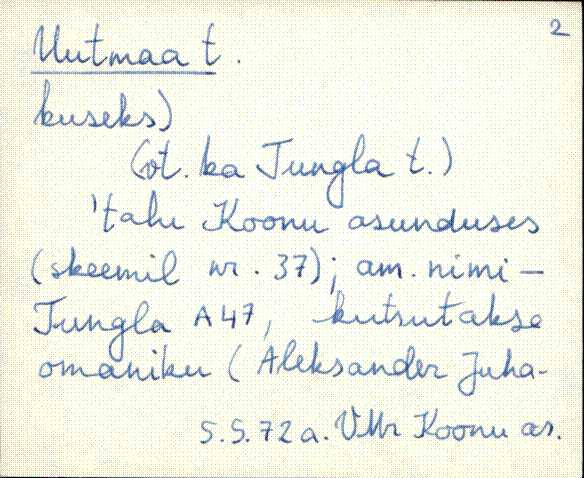 2
Uutmaa t.
kuseks)
(vt. ka Jungla t.)
'talu Koonu asunduses
(skeemil nr. 37); am. nimi –
Jungla A47, kutsutakse
omaniku (Aleksander Juha-
S.S. 72 a. VMr Koonu as.